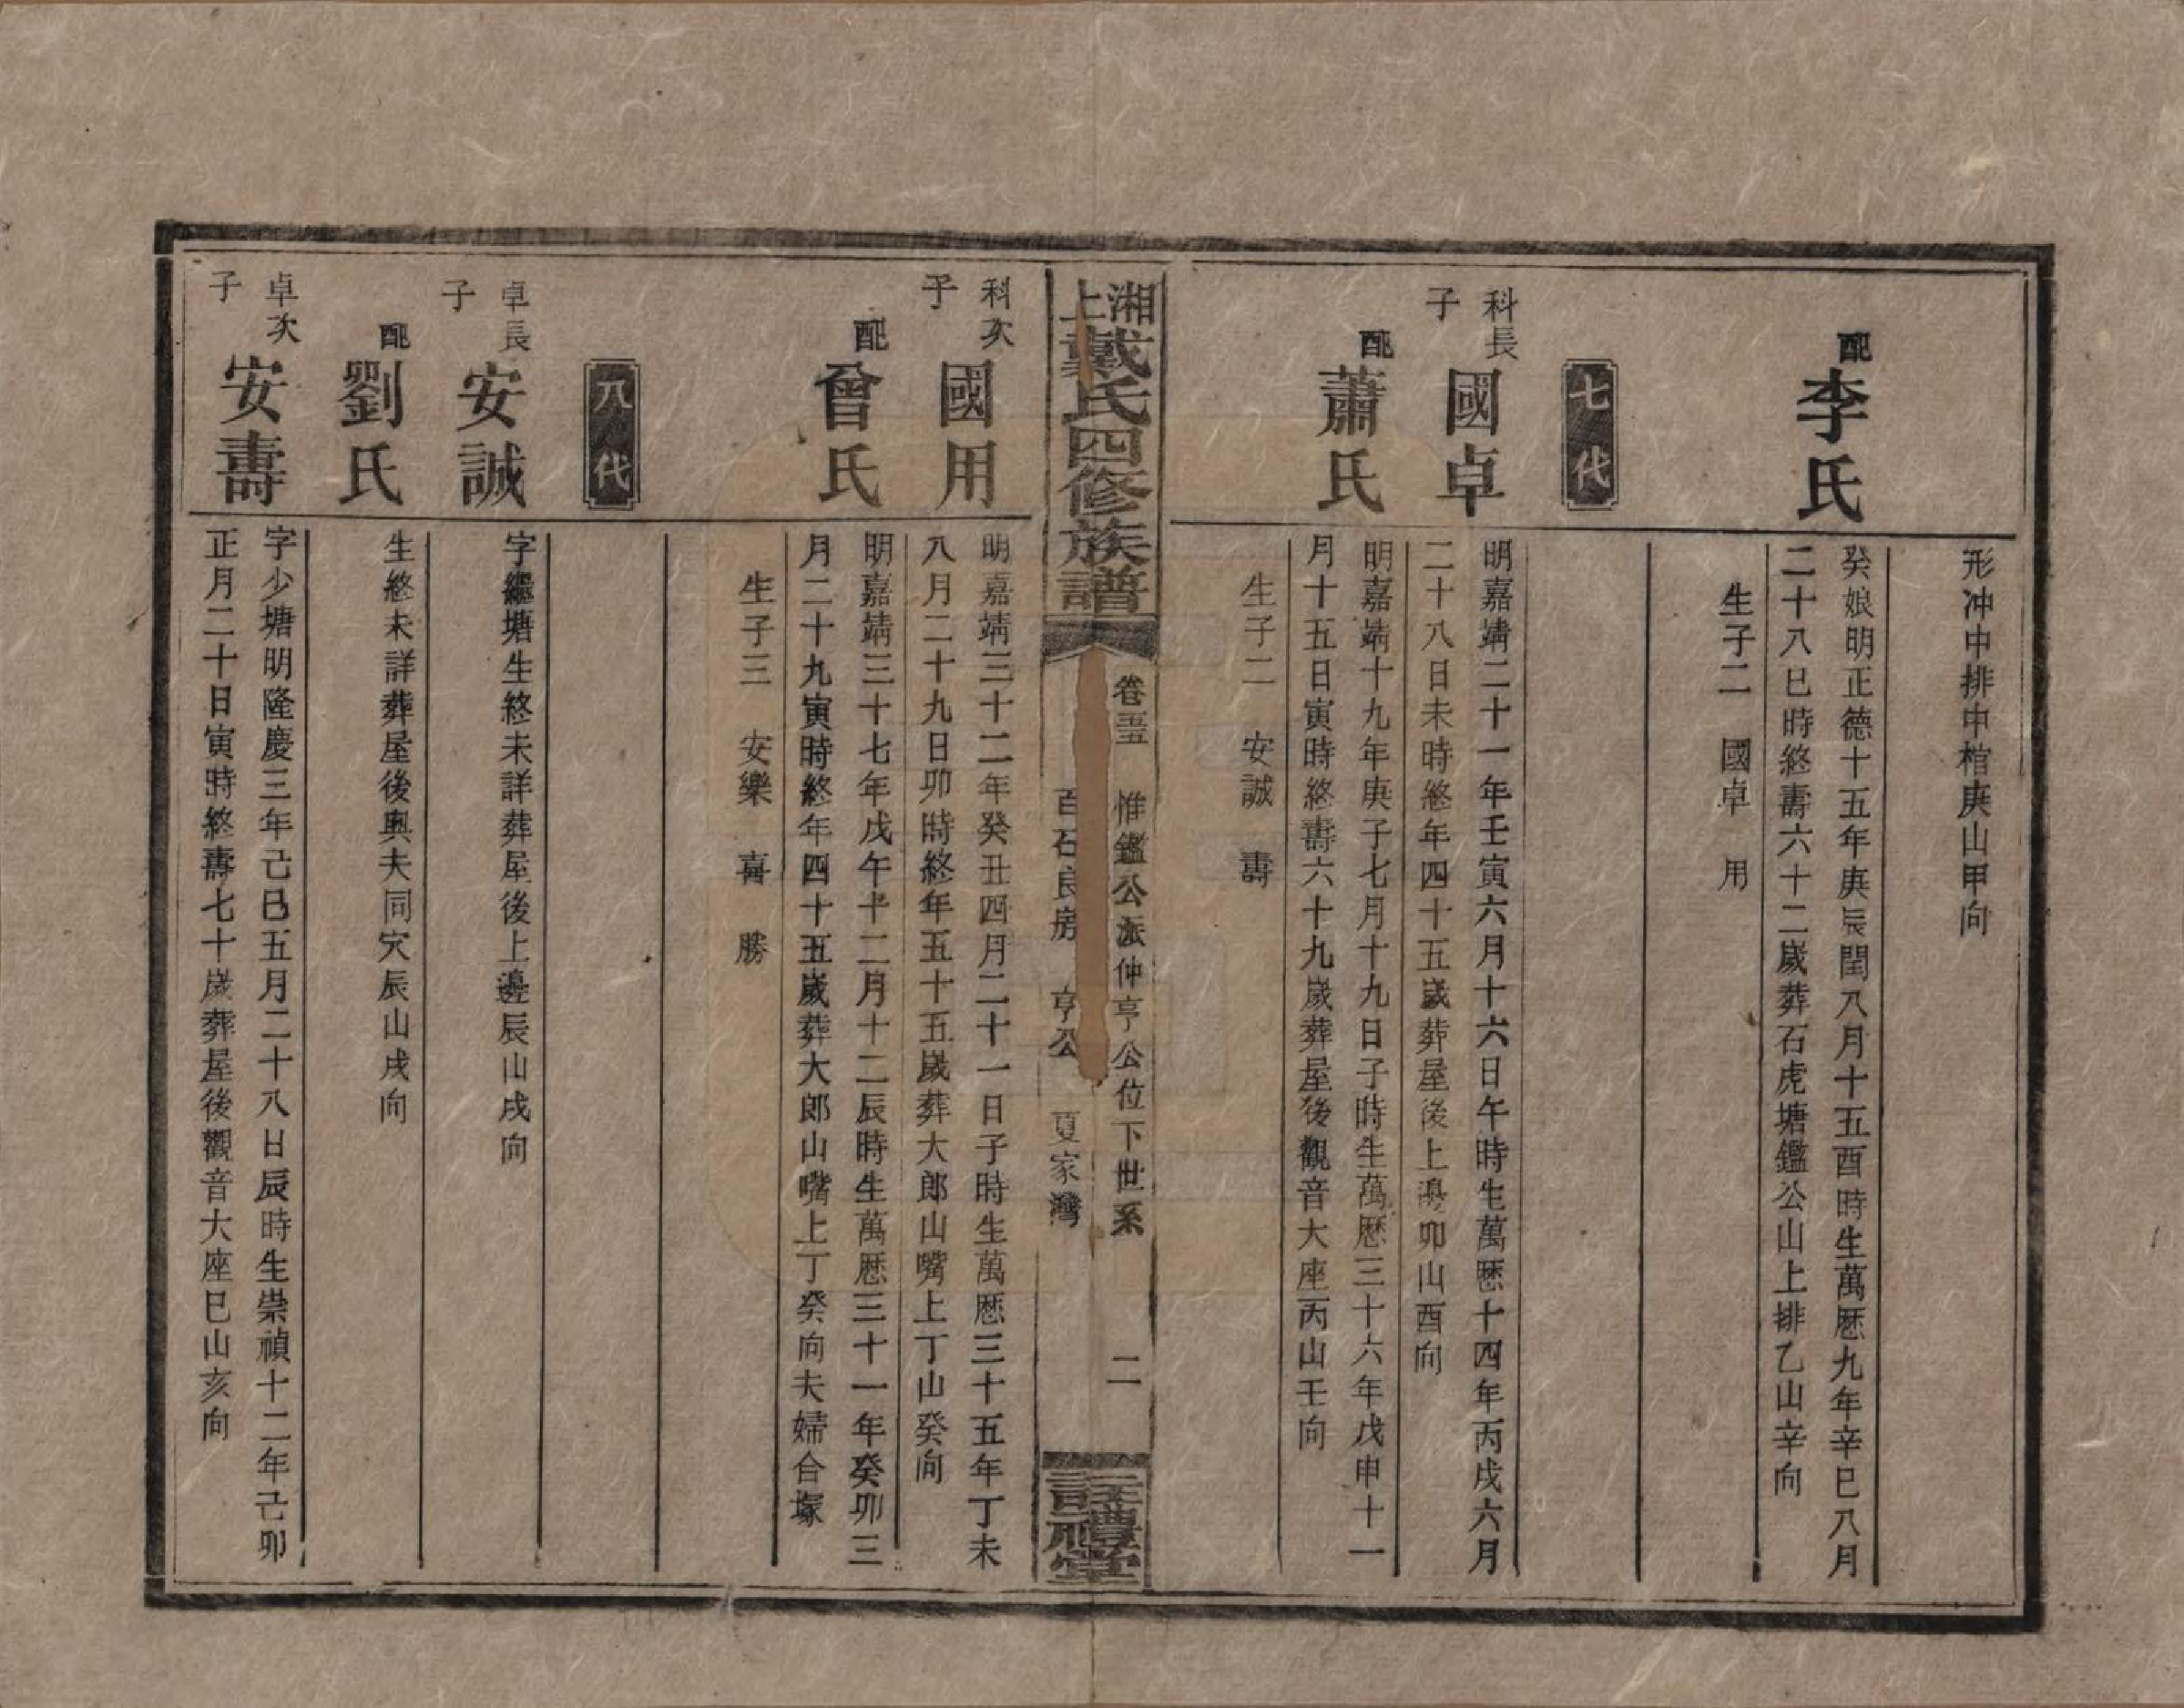 形冲中排中棺庚山甲向
配
李氏
癸娘明正德十五年庚辰閏八月十五酉時生萬厯九年辛巳八月
二十八巳時終壽六十二歲葬石虎塘鑑公山上排乙山辛向
生子二　國卓　用
七代
科長
子
國卓
明嘉靖二十一年壬寅六月十六日午時生萬厯十四年丙戌六月
二十八日未時終年四十五歲葬屋後上邊卯山酉向
配
蕭氏
明嘉靖十九年庚子七月十九日子時生萬厯三十六年戊申十一
月十五日寅時終壽六十九歲葬屋後觀音大座丙山壬向
生子二　安誠　壽
湘上戴氏四修族譜
卷五　惟鑑公派仲亨公位下世系　二
百石良房　亨公　夏家灣
註禮堂
科次
子
國用
明嘉靖三十二年癸丑四月二十一日子時生萬厯三十五年丁未
八月二十九日卯時終年五十五歲葬大郎山嘴上丁山癸向
配
曾氏
明嘉靖三十七年戊午十二月十二辰時生萬厯三十一年癸卯三
月二十九寅時終年四十五歲葬大郎山嘴上丁癸向夫婦合塚
生子三　安樂　喜　勝
八代
卓長
子
安誠
字繼塘生終未詳葬屋後上邊辰山戌向
配
劉氏
生終未詳葬屋後與夫同穴辰山戌向
卓次
子
安壽
字少塘明隆慶三年己巳五月二十八日辰時生崇禎十二年己卯
正月二十日寅時終壽七十歲葬屋後觀音大座巳山亥向